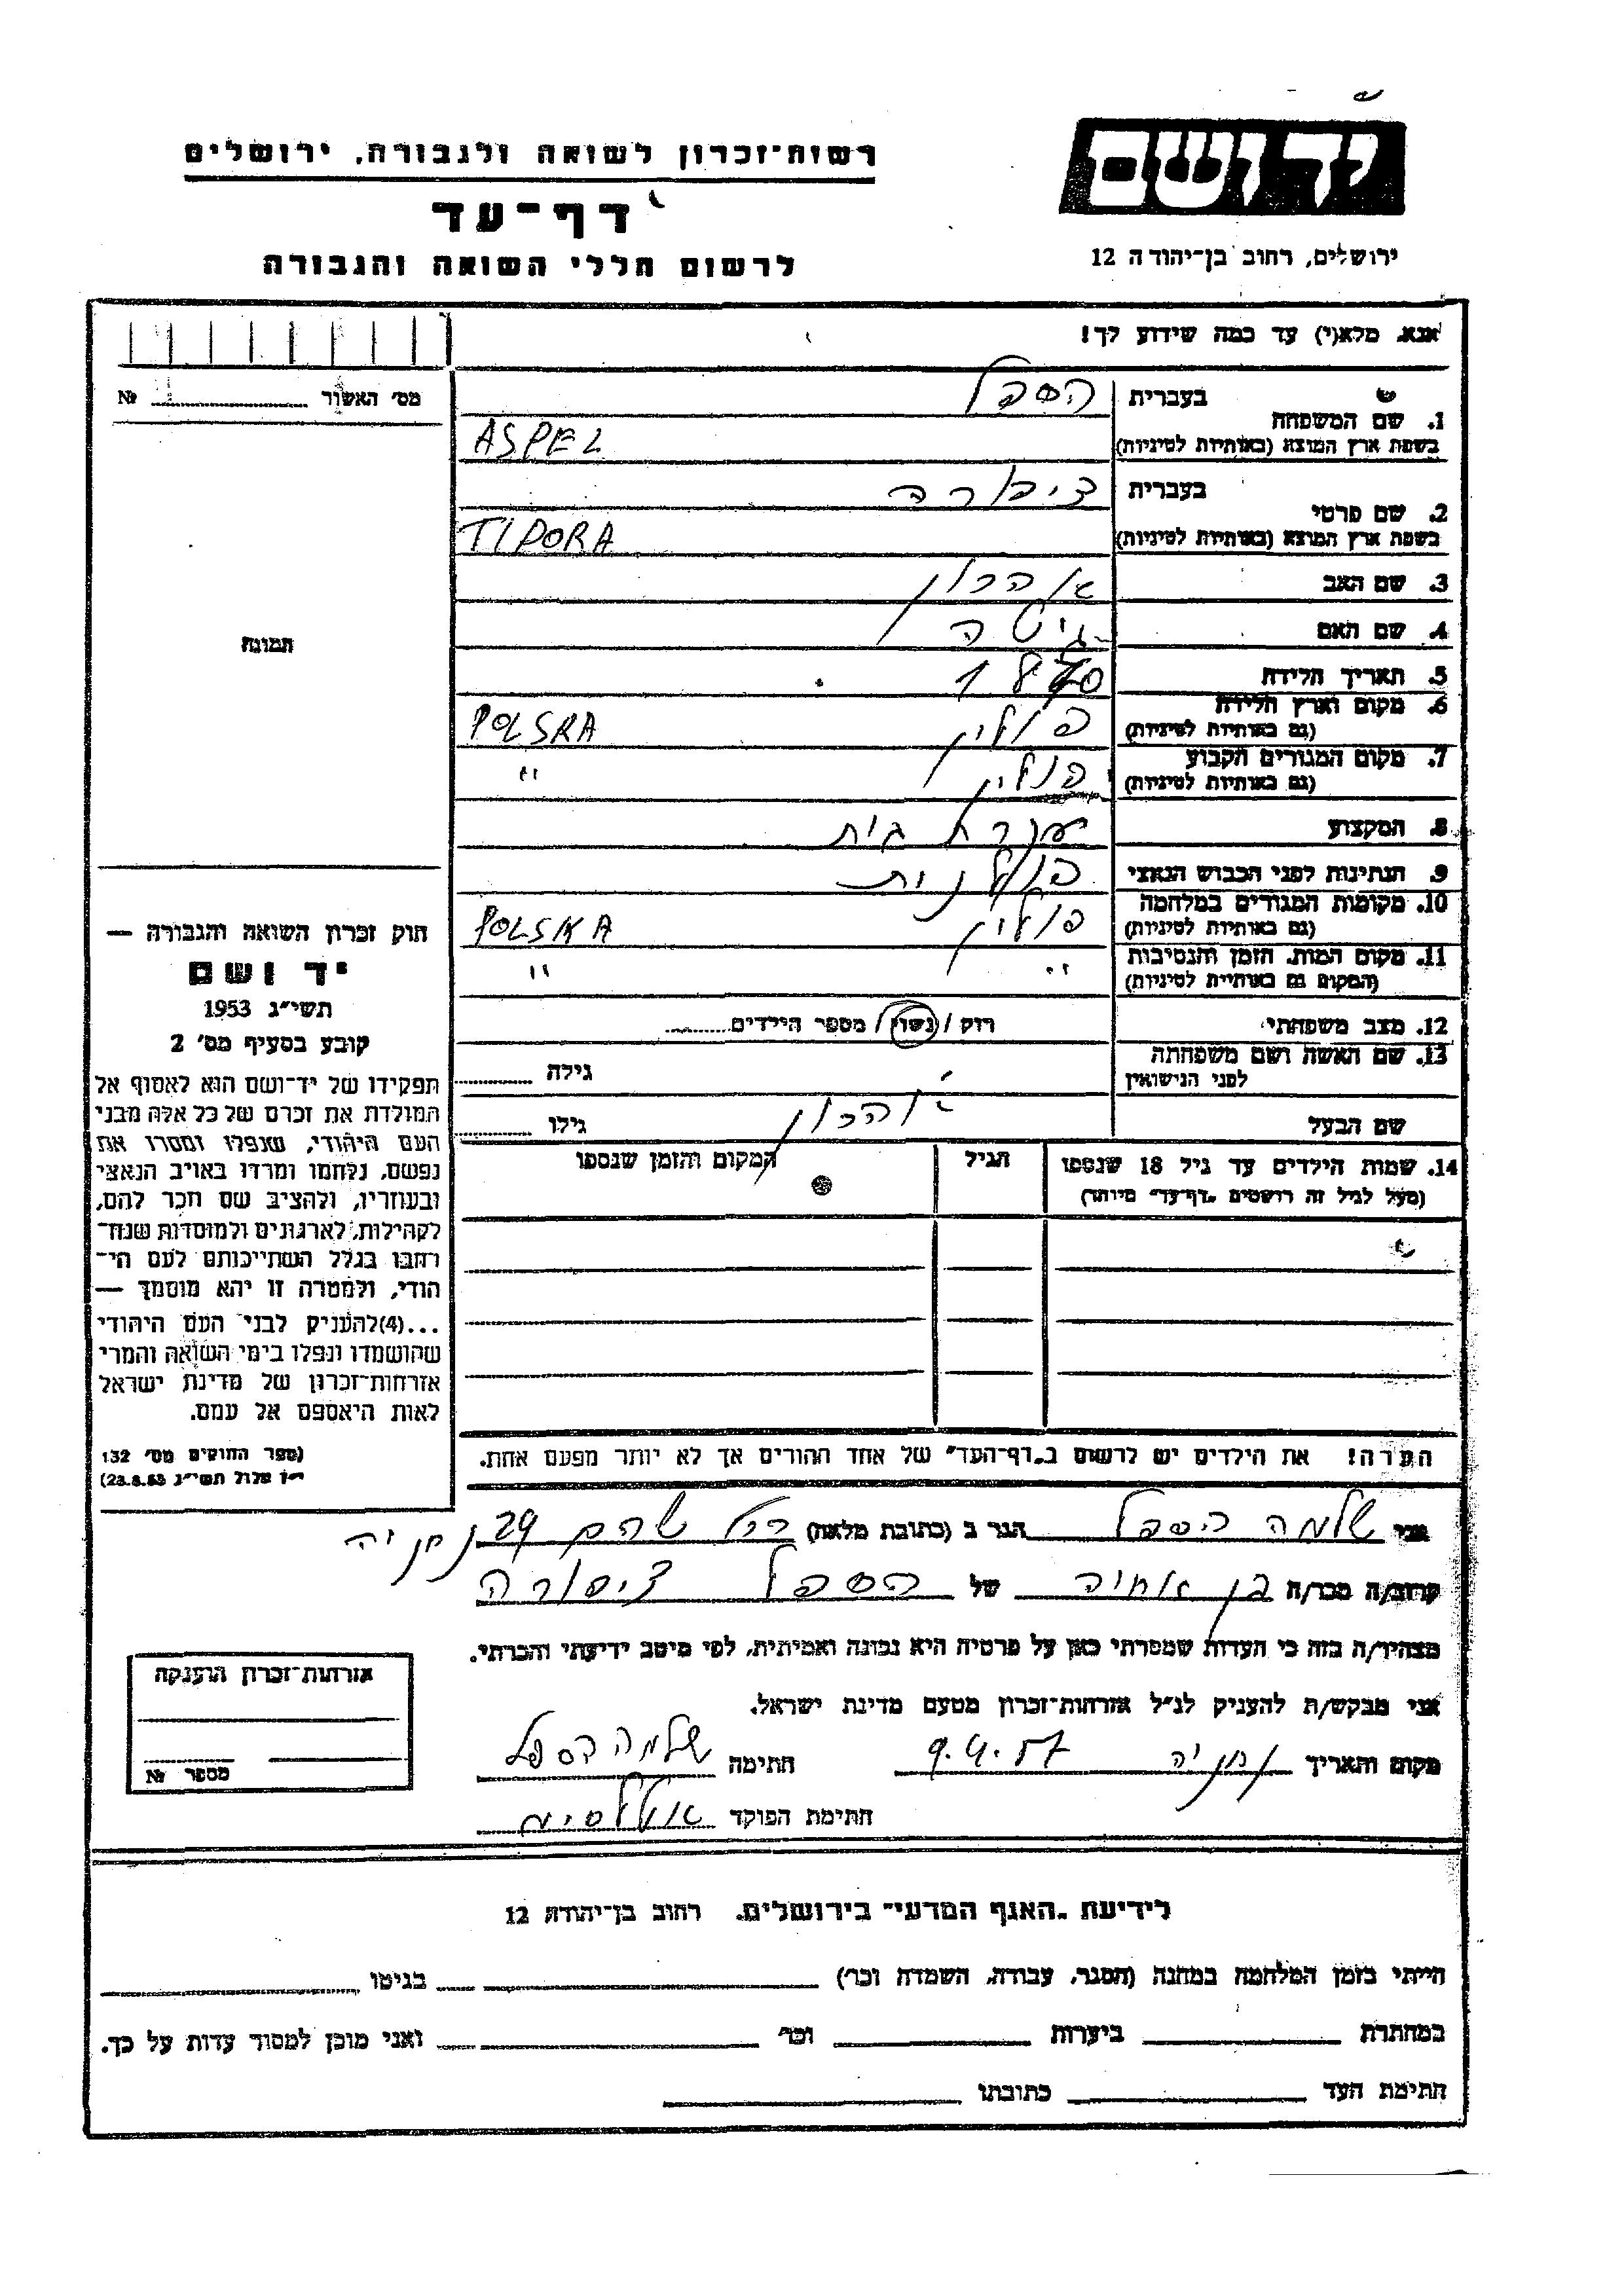 יד ושם
רשות־זכרון לשואה ולגבורה, ירושלים
דף־עד
לרשום חללי השואה והגבורה
ירושלים, רחוב בן־יהודה 12
אנא, מלא(י) עד כמה שידוע לך!
מס' האשור № 
1. שם המשפחה בעברית הספל
בשפת ארץ המוצא (באותיות לטיניות) ASPEL
2. שם פרטי בעברית ציפורה
בשפת ארץ המוצא (באותיות לטיניות) TIPORA
3. שם האב אהרון
4. שם האם גיטה
5. תאריך הלידה 1870
6. מקום וארץ הלידה פולין POLSKA
(גם באותיות לטיניות)
7. מקום המגורים הקבוע פולין "
(גם באותיות לטיניות)
8. המקצוע עקרת בית
9. הנתינות לפני הכבוש הנאצי פולנית
10. מקומות המגורים במלחמה פולין POLSKA
(גם באותיות לטיניות)
11. מקום המות, הזמן והנסיבות " "
(המקום גם באותיות לטיניות)
12. מצב משפחתי רווק / נשוי / מספר הילדים
13. שם האשה ושם משפחתה
לפני הנישואין גילה
שם הבעל אהרון גילו
14. שמות הילדים עד גיל 18 שנספו הגיל המקום והזמן שנספו
(מעל לגיל זה רושמים "דף־עד" מיוחד)
הערה! את הילדים יש לרשום ב"דף־העד" של אחד ההורים אך לא יותר מפעם אחת.
תמונה
חוק זכרון השואה והגבורה —
יד ושם
תשי"ג 1953
קובע בסעיף מס' 2
תפקידו של יד־ושם הוא לאסוף אל
המולדת את זכרם של כל אלה מבני
העם היהודי, שנפלו ומסרו את
נפשם, נלחמו ומרדו באויב הנאצי
ובעוזריו, ולהציב שם וזכר להם,
לקהילות, לארגונים ולמוסדות שנח־
רבו בגלל השתייכותם לעם הי־
הודי, ולמטרה זו יהא מוסמך —
...(4)להעניק לבני העם היהודי
שהושמדו ונפלו בימי השואה והמרי
אזרחות־זכרון של מדינת ישראל
לאות היאספם אל עמם.
(ספר החוקים מס' 132
י"ז אלול תשי"ג 23.8.53)
אני שלמה הספל הגר ב (כתובת מלאה) 29 נתניה
קרוב/ה מכר/ה בן אחיה של הספל ציפורה
מצהיר/ה בזה כי העדות שמסרתי כאן על פרטיה היא נכונה ואמיתית, לפי מיטב ידיעתי והכרתי.
אני מבקש/ת להעניק לנ"ל אזרחות־זכרון מטעם מדינת ישראל.
מקום ותאריך נתניה 9.4.57 חתימה שלמה הספל
חתימת הפוקד
אזרחות־זכרון הוענקה
מספר №
לידיעת "האגף המדעי" בירושלים, רחוב בן־יהודה 12
הייתי בזמן המלחמה במחנה (הסגר, עבודה, השמדה וכו') בגיטו
במחתרת ביערות וכו' ואני מוכן למסור עדות על כך.
חתימת העד כתובתו